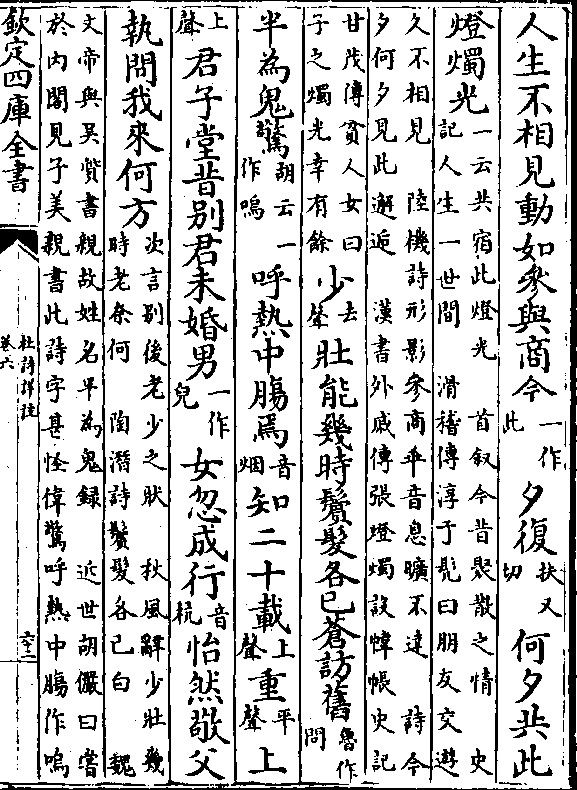 人生不相見動如參與商今一作此夕復扶又切何夕共此
燈燭光一云共宿此燈光 首叙今昔聚散之情 史
記人生一世間 滑稽傳淳于髠曰朋友交遊
久不相見 陸機詩形影參商乖音息曠不達 詩今
夕何夕見此邂逅 漢書外戚傳張燈燭設幃帳 史記
甘茂傳貧人女曰
子之燭光幸有餘少去聲壯能幾時鬢髮各已蒼訪舊魯作問
半為鬼驚胡云一作嗚呼熱中腸焉音烟知二十載上聲重平聲上
上聲君子堂昔别君未婚男一作兒女忽成行音杭怡然敬父
執問我來何方次言别後老少之狀 秋風辭少壯幾
時老奈何 陶潛詩鬢髮各已白 魏
文帝與吴質書親故姓名半為鬼録 近世胡儼曰嘗
於内閣見子美親書此詩字甚怪偉驚呼熱中腸作嗚
欽定四庫全書
杜詩詳註
卷六